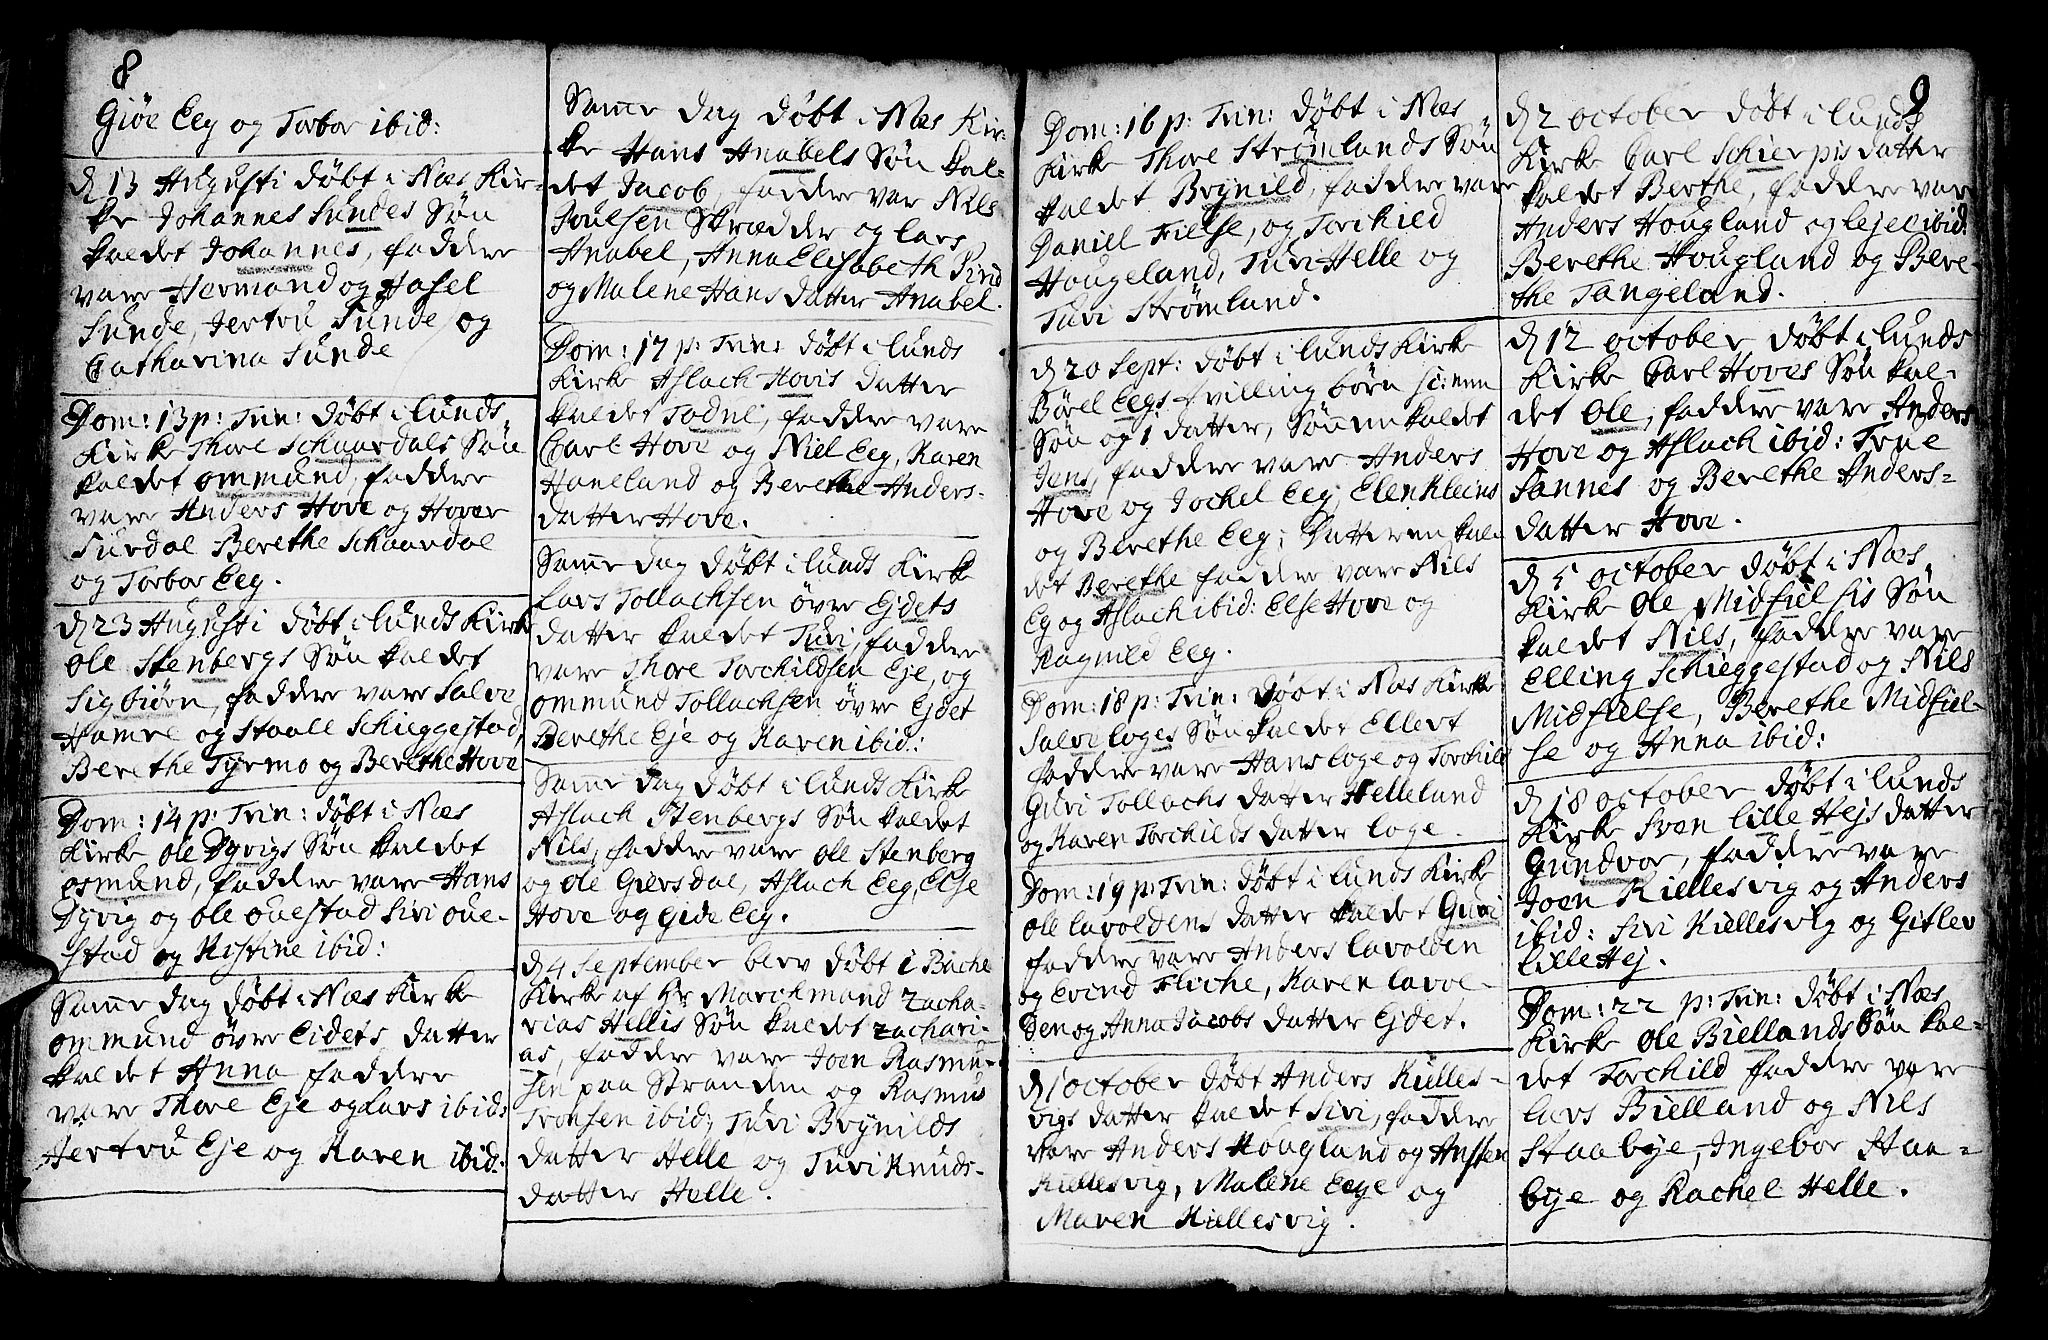 8
Giöe Eeg og Torbor ibid:
d 13 Augusti döbt i Næs Kir-
ke Johannes Sundes Sön
kaldet Johannes, faddere
vare Hermand og Hosel
Sunde, Jertru Sunde og
Catharina Sunde
Dom: 13 p: Trin: döbt i Lunds
Kirke Thore Schaardals Sön
kaldet Ommund, faddere
vare Anders Hove og Hover
Surdal Berethe Schaardal
og Torbor Eeg.
d 23 Augusti döbt i Lunds Kirke
Ole Stenbergs Sön kaldet
Sigbiörn, faddere vare Salve
Hamre og Staall Schieggestad,
Berethe Tyrmo og Berethe Hove
Dom: 14 p: Trin: döbt i Næs
Kirke Ole Dyvigs Sön kaldet
Osmund, faddere vare Hans
Dyvig og Ole Ouestad Siri Oue-
stad og Kistine ibid:
Same dag döbt i Næs Kirke
Ommund övre Eidets datter
kaldet Anna faddere
vare Thore Eje og Lars ibid:
Jertru Eje og Karen ibid:
Same dag döbt i Næs Kir-
ke Hans Anabels Sön kal-
det Jacob, faddere var Nils
Poulsen Skrædder og Lars
Anabel, Anna Elisabeth
og Malene Hans datter Anabel.
Dom: 17 p: Trin: döbt i Lunds
Kirke Aslach Hovis datter
kaldet Todne, faddere vare
Carl Hove og Niel Eeg, Karen
Haneland og Berethe Anders-
datter Hove.
Same dag döbt i Lunds Kirke
Lars Tollachsen övre Ejdets
datter kaldet Turi, faddere
vare Thore Torchildsen Eje, og
Ommund Tollachsen övre Ejdet
Berethe Eje og Karen ibid:
Same dag döbt i Lunds Kirke
Aslach Stenbergs Sön kaldet
Nils, faddere vare Ole Stenberg
og Ole Giersdal, Aslach Eeg, Else
Hove og Gide Eeg.
d 4 September blev döbt i Bache
Kirke af Hr Marchmand Zacha-
rias Hellis Sön kaldet Zachari-
as, faddere vare Joen Rasmu-
sen paa Stranden og Rasmus
Tronsen ibid; Turi Brynilds
datter Helle og Turi Knuds-
datter Helle.
Dom: 16 p: Trin: döbt i Næs
Kirke Thore Strömlands Sön
kaldet Brynild, faddere vare
Daniel Fielse, og Torchild
Hougeland, Turi Helle og
Turi Strömland.
d 20 Sept: döbt i Lunds Kirke
Börel Eegs tvilling börn sc: enn
Sön og 1 datter, Sönnen kaldet
Jens, faddere vare Anders
Hove og Jochel Eeg, Elen Kleins
og Berethe Eeg; Datteren kal-
det Berethe faddere vare Nils
Eg og Aslach ibid: Else Hove og
Ragnild Eeg.
Dom: 18 p: Trin: döbt i Næs Kirke
Salve Loges Sön kaldet Ellert
faddere vare Hans Loge og Torchild
Guri Tollachs datter Helleland
og Karen Torchilds datter Loge.
Dom: 19 p: Trin: döbt i Lunds Kirke
Ole Lavoldens datter kaldet Guri
faddere vare Anders Lavolden
og Evind Fliche, Karen Lavol-
den og Anna Jacobs datter Ejdet.
d 1 October döbt Anders Kielles-
vigs datter kaldet Siri, faddere
vare Anders Hougland og Ansten
Kiellesvig, Malene Eeje og
Maren Kiellesvig.
9
d 2 October döbt i Lunds
Kirke Carl Schierpis datter
kaldet Berthe, faddere var
Anders Hougland og Lejel ibid:
Berethe Hougland og Bere-
the Tangeland.
d 12 October döbt i Lunds
Kirke Carl Hoves Sön kal-
det Ole, faddere vare Anders
Hove og Aslach ibid: Trne
Sannes og Berethe Anders-
datter Hove.
d 5 October döbt i Næs
Kirke Ole Midfielsis Sön
kaldet Nils, faddere vare
Elling Schieggestad og Nils
Midfielse, Berethe Midfiel-
se og Anna ibid:
d 18 October döbt i Lunds
Kirke Sven lille Hejs datter
Gundvor, faddere vare
Joen Kiellesvig og Anders
ibid: Siri Kiellesvig og Gitlev
lille Hej.
Dom: 22 p: Trin: döbt i Næs
Kirke Ole Biellands Sön kal-
det Torchild faddere vare
Lars Bielland og Nils
Staabye, Ingebor Staa-
bye og Rachel Helle.